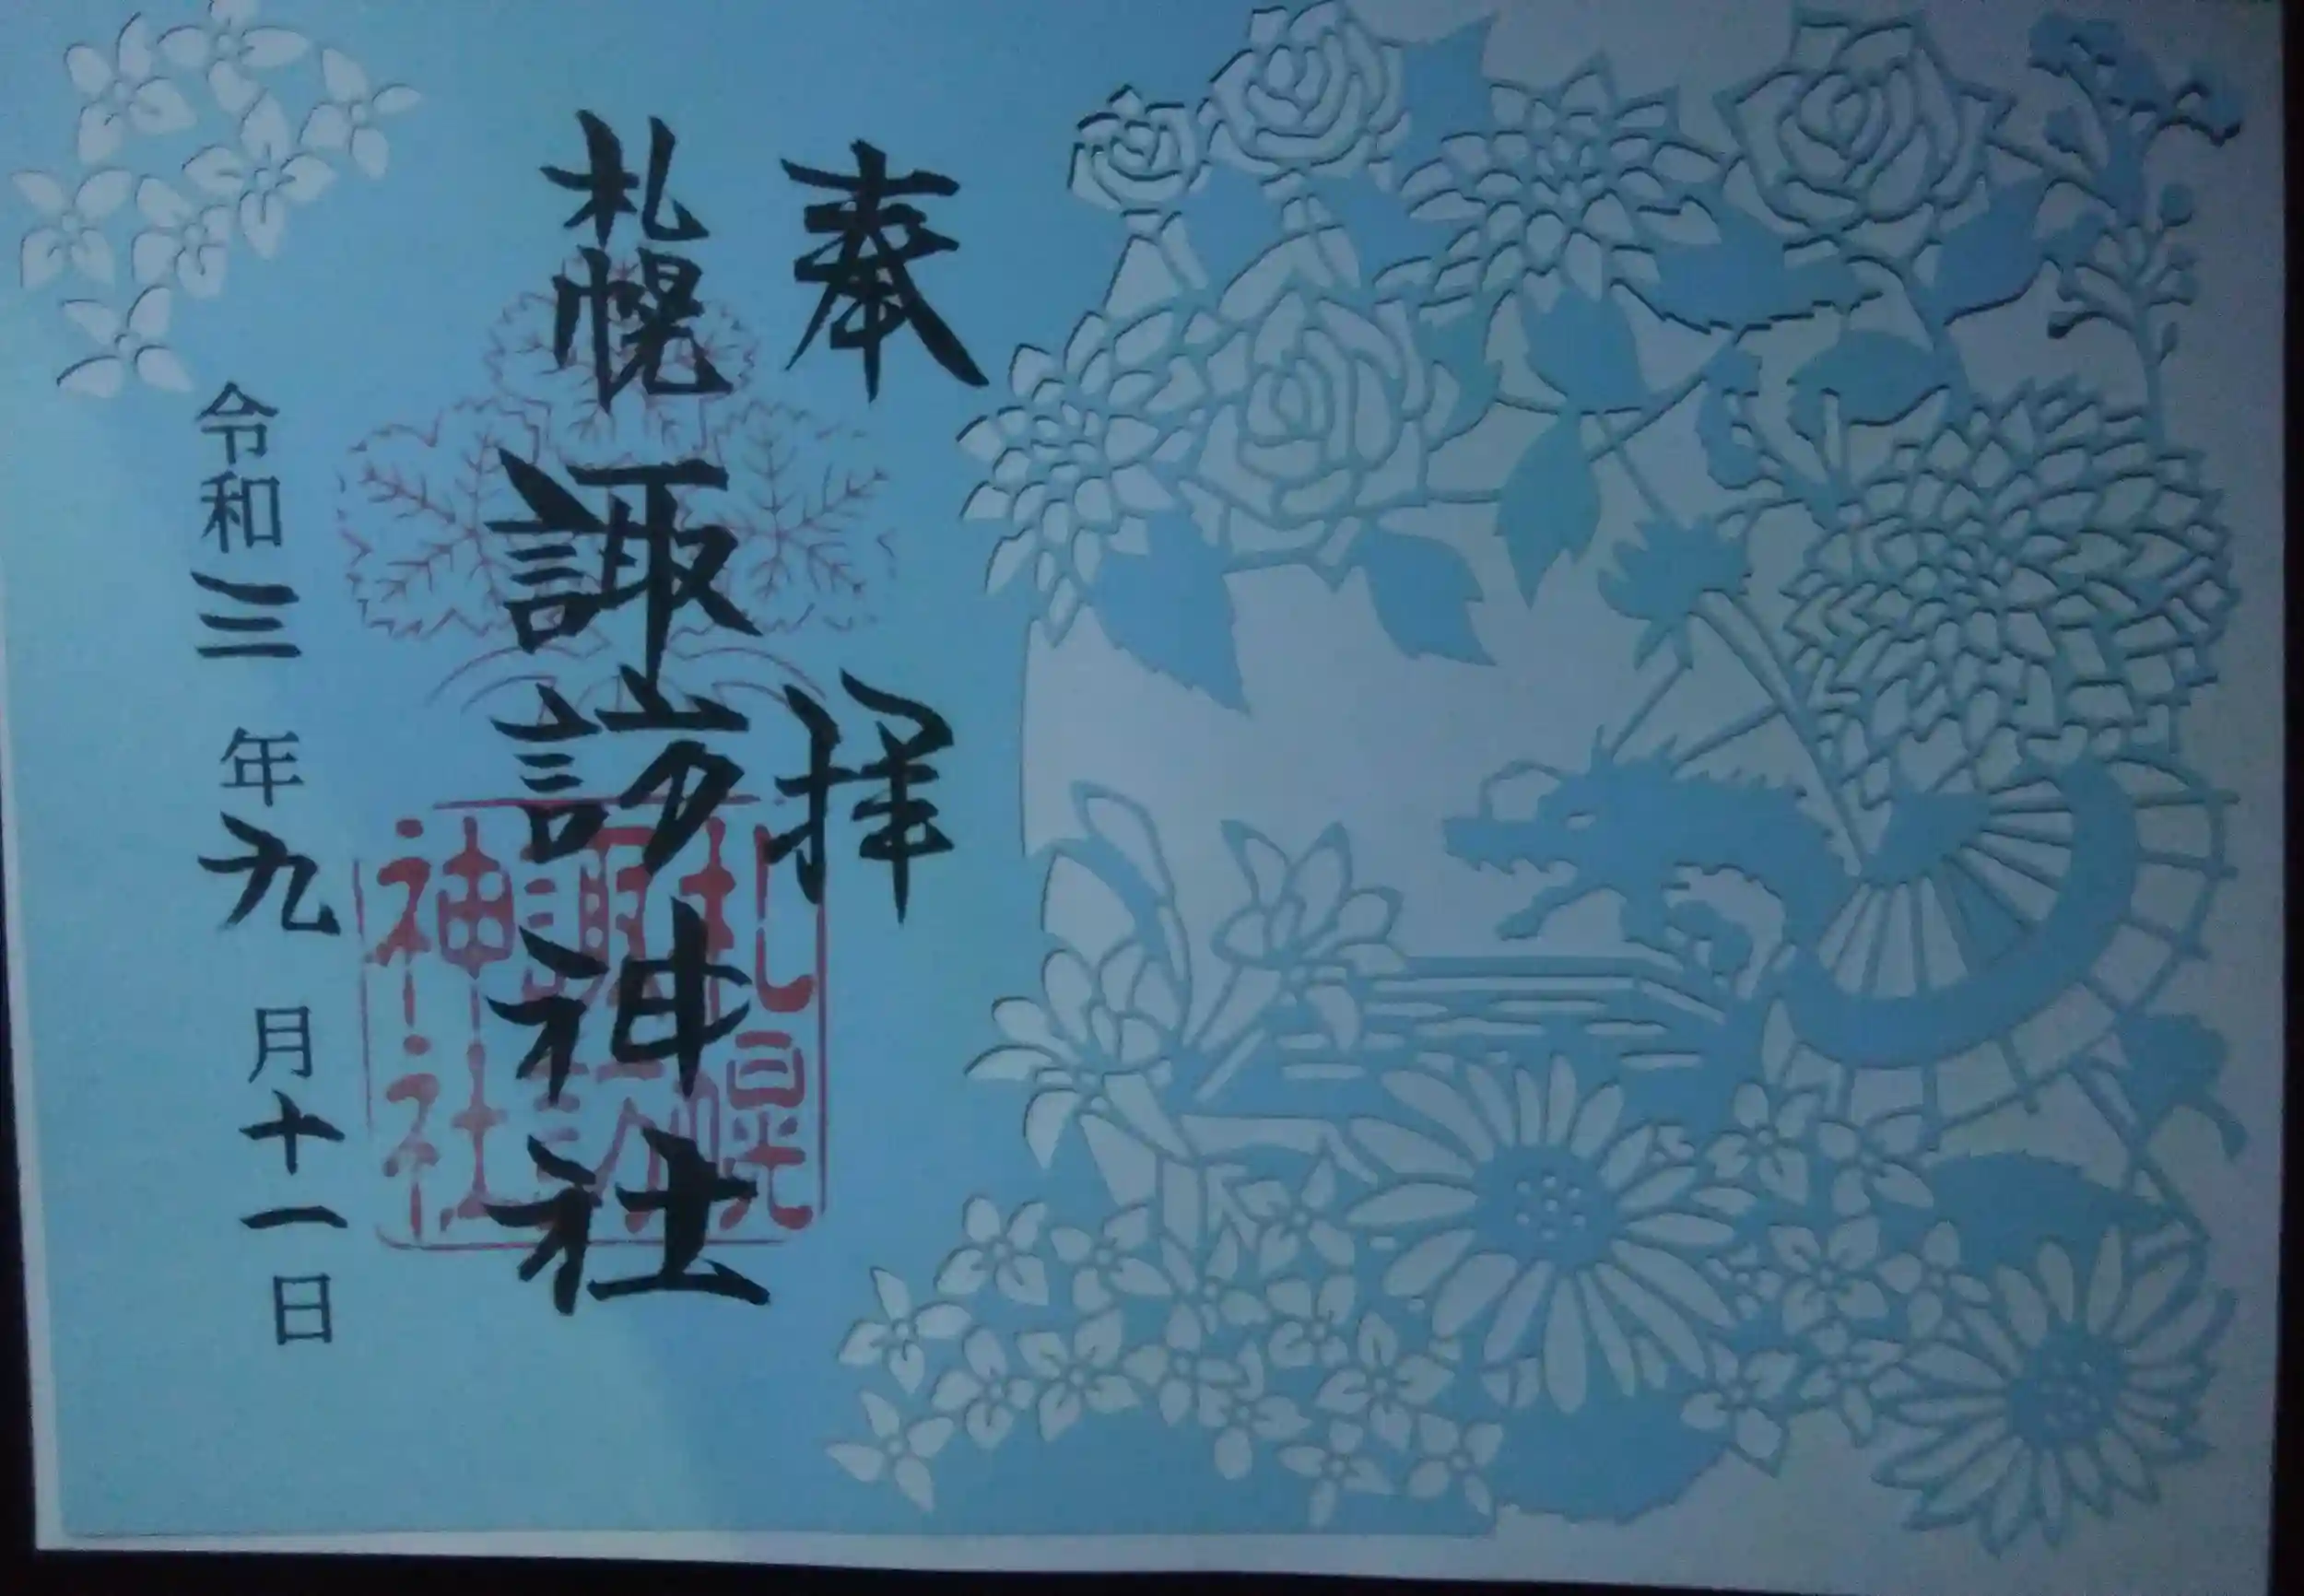 奉拝
札幌諏訪神社
札幌
諏訪
神社
令和三年九月十一日